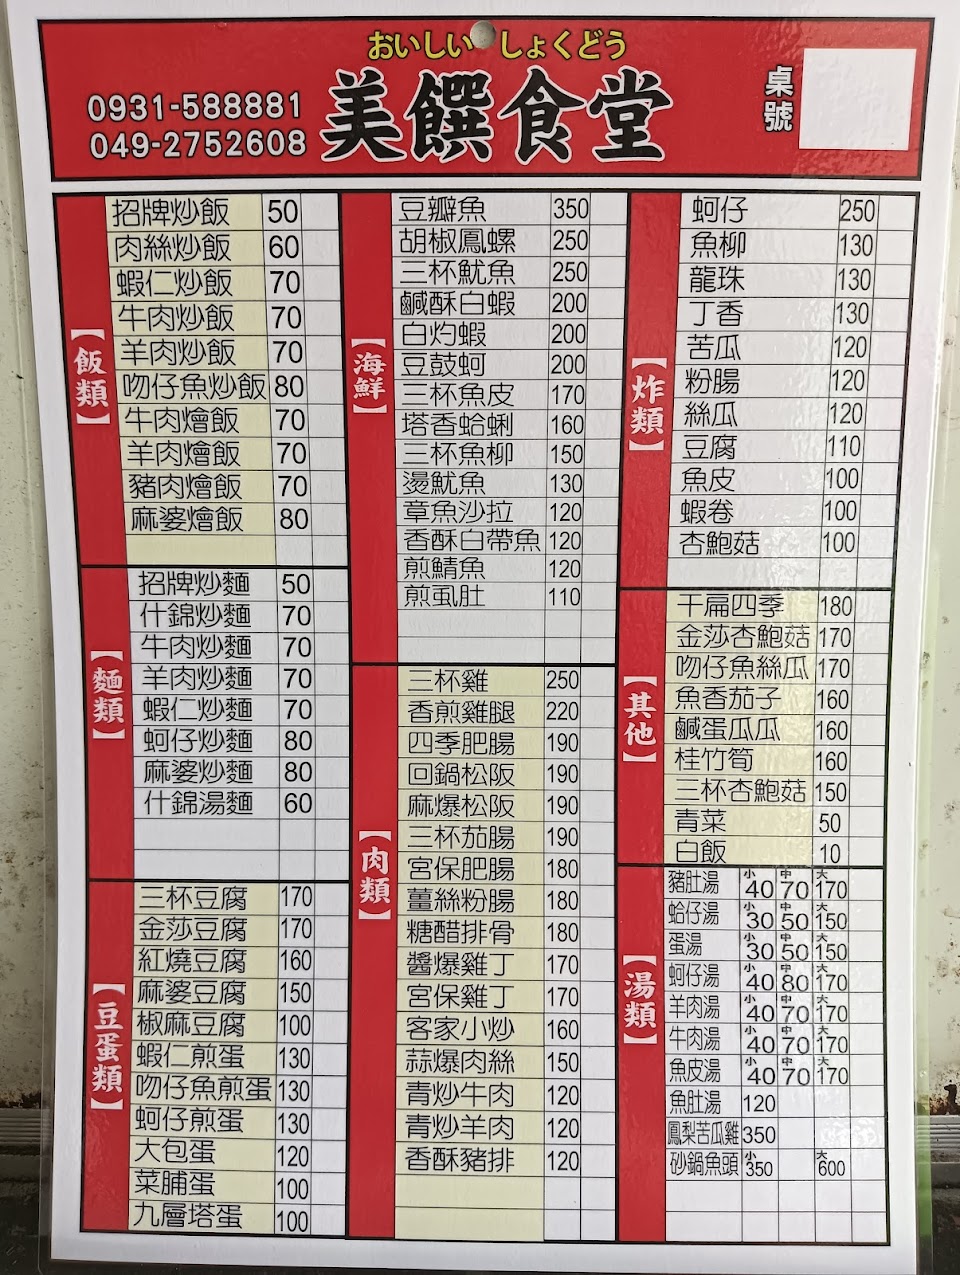 おいしい しょくどう
0931-588881
049-2752608
美饌食堂
桌號
【飯類】
招牌炒飯 50
肉絲炒飯 60
蝦仁炒飯 70
牛肉炒飯 70
羊肉炒飯 70
吻仔魚炒飯 80
牛肉燴飯 70
羊肉燴飯 70
豬肉燴飯 70
麻婆燴飯 80
【麵類】
招牌炒麵 50
什錦炒麵 70
牛肉炒麵 70
羊肉炒麵 70
蝦仁炒麵 70
蚵仔炒麵 80
麻婆炒麵 80
什錦湯麵 60
【豆蛋類】
三杯豆腐 170
金莎豆腐 170
紅燒豆腐 160
麻婆豆腐 150
椒麻豆腐 100
蝦仁煎蛋 130
吻仔魚煎蛋 130
蚵仔煎蛋 130
大包蛋 120
菜脯蛋 100
九層塔蛋 100
【海鮮】
豆瓣魚 350
胡椒鳳螺 250
三杯魷魚 250
鹹酥白蝦 200
白灼蝦 200
豆鼓蚵 200
三杯魚皮 170
塔香蛤蜊 160
三杯魚柳 150
燙魷魚 130
章魚沙拉 120
香酥白帶魚 120
煎鯖魚 120
煎虱肚 110
【肉類】
三杯雞 250
香煎雞腿 220
四季肥腸 190
回鍋松阪 190
麻爆松阪 190
三杯茄腸 190
宮保肥腸 180
薑絲粉腸 180
糖醋排骨 180
醬爆雞丁 170
宮保雞丁 170
客家小炒 160
蒜爆肉絲 150
青炒牛肉 120
青炒羊肉 120
香酥豬排 120
【炸類】
蚵仔 250
魚柳 130
龍珠 130
丁香 130
苦瓜 120
粉腸 120
絲瓜 120
豆腐 110
魚皮 100
蝦卷 100
杏鮑菇 100
【其他】
干扁四季 180
金莎杏鮑菇 170
吻仔魚絲瓜 170
魚香茄子 160
鹹蛋瓜瓜 160
桂竹筍 160
三杯杏鮑菇 150
青菜 50
白飯 10
【湯類】
豬肚湯 小40 中70 大170
蛤仔湯 小30 中50 大150
蛋湯 小30 中50 大150
蚵仔湯 小40 中80 大170
羊肉湯 小40 中70 大170
牛肉湯 小40 中70 大170
魚皮湯 小40 中70 大170
魚肚湯 120
鳳梨苦瓜雞 350
砂鍋魚頭 小350 大600